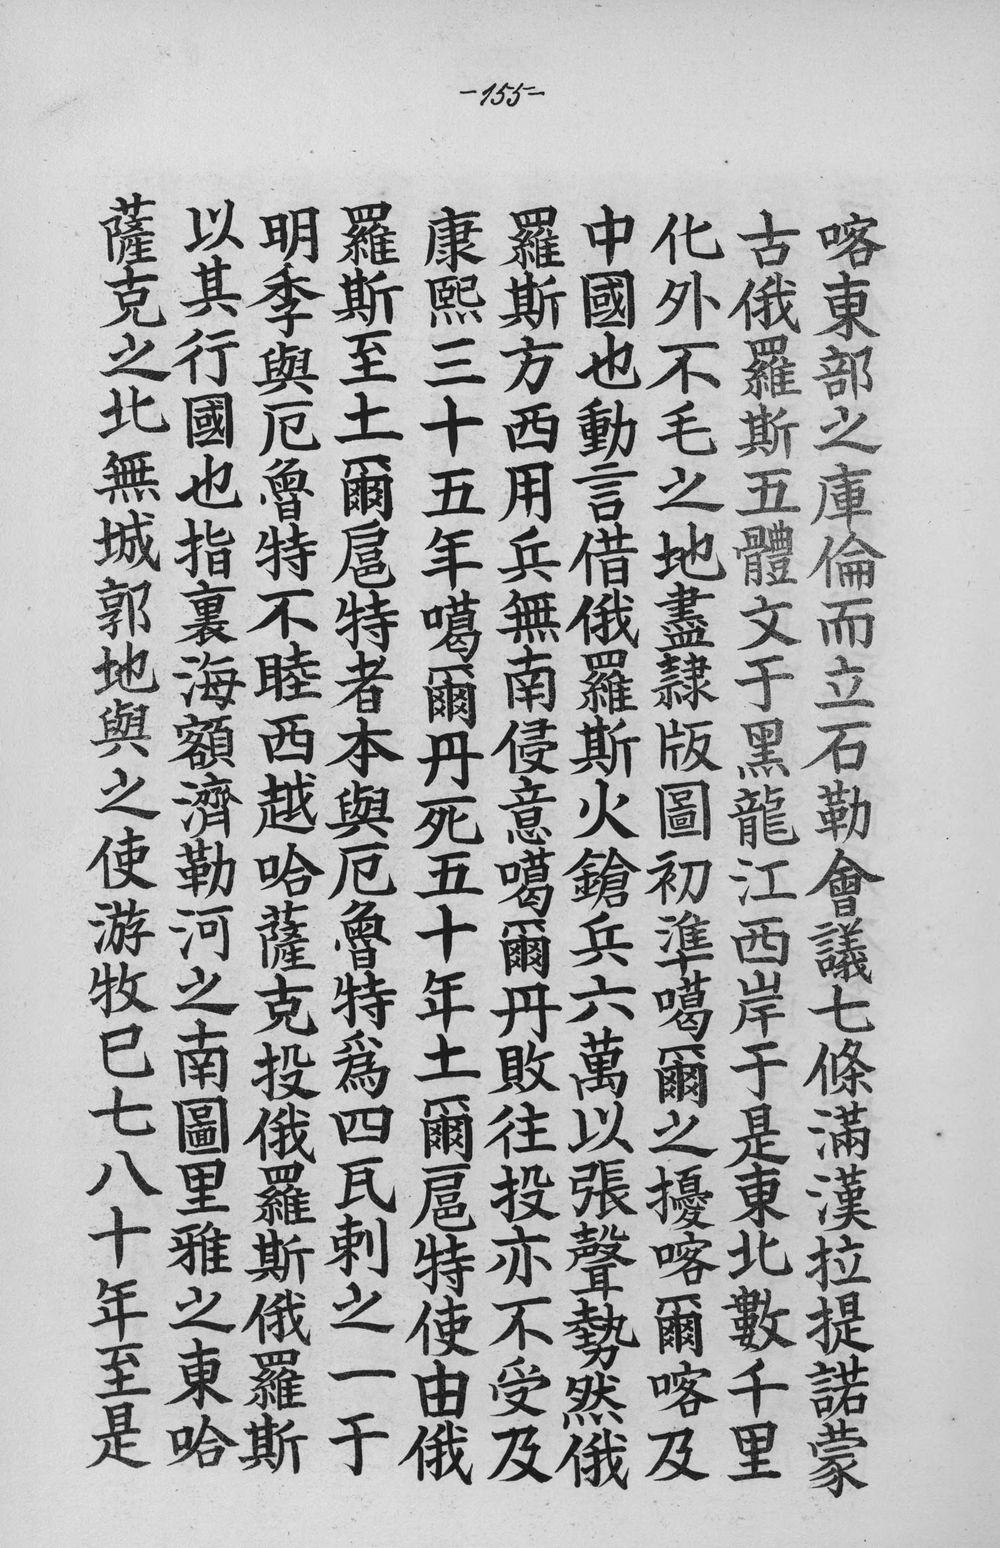 -155-
喀東部之庫倫而立石勒會議七條滿漢拉提諾蒙
古俄羅斯五體文于黑龍江西岸于是東北數千里
化外不毛之地盡隸版圖初準噶爾之擾喀爾喀及
中國也動言借俄羅斯火鎗兵六萬以張聲勢然俄
羅斯方西用兵無南侵意噶爾丹敗往投亦不受及
康熙三十五年噶爾丹死五十年土爾扈特使由俄
羅斯至土爾扈特者本與厄魯特爲四瓦剌之一于
明季與厄魯特不睦西越哈薩克投俄羅斯俄羅斯
以其行國也指裏海額濟勒河之南圖里雅之東哈
薩克之北無城郭地與之使游牧已七八十年至是